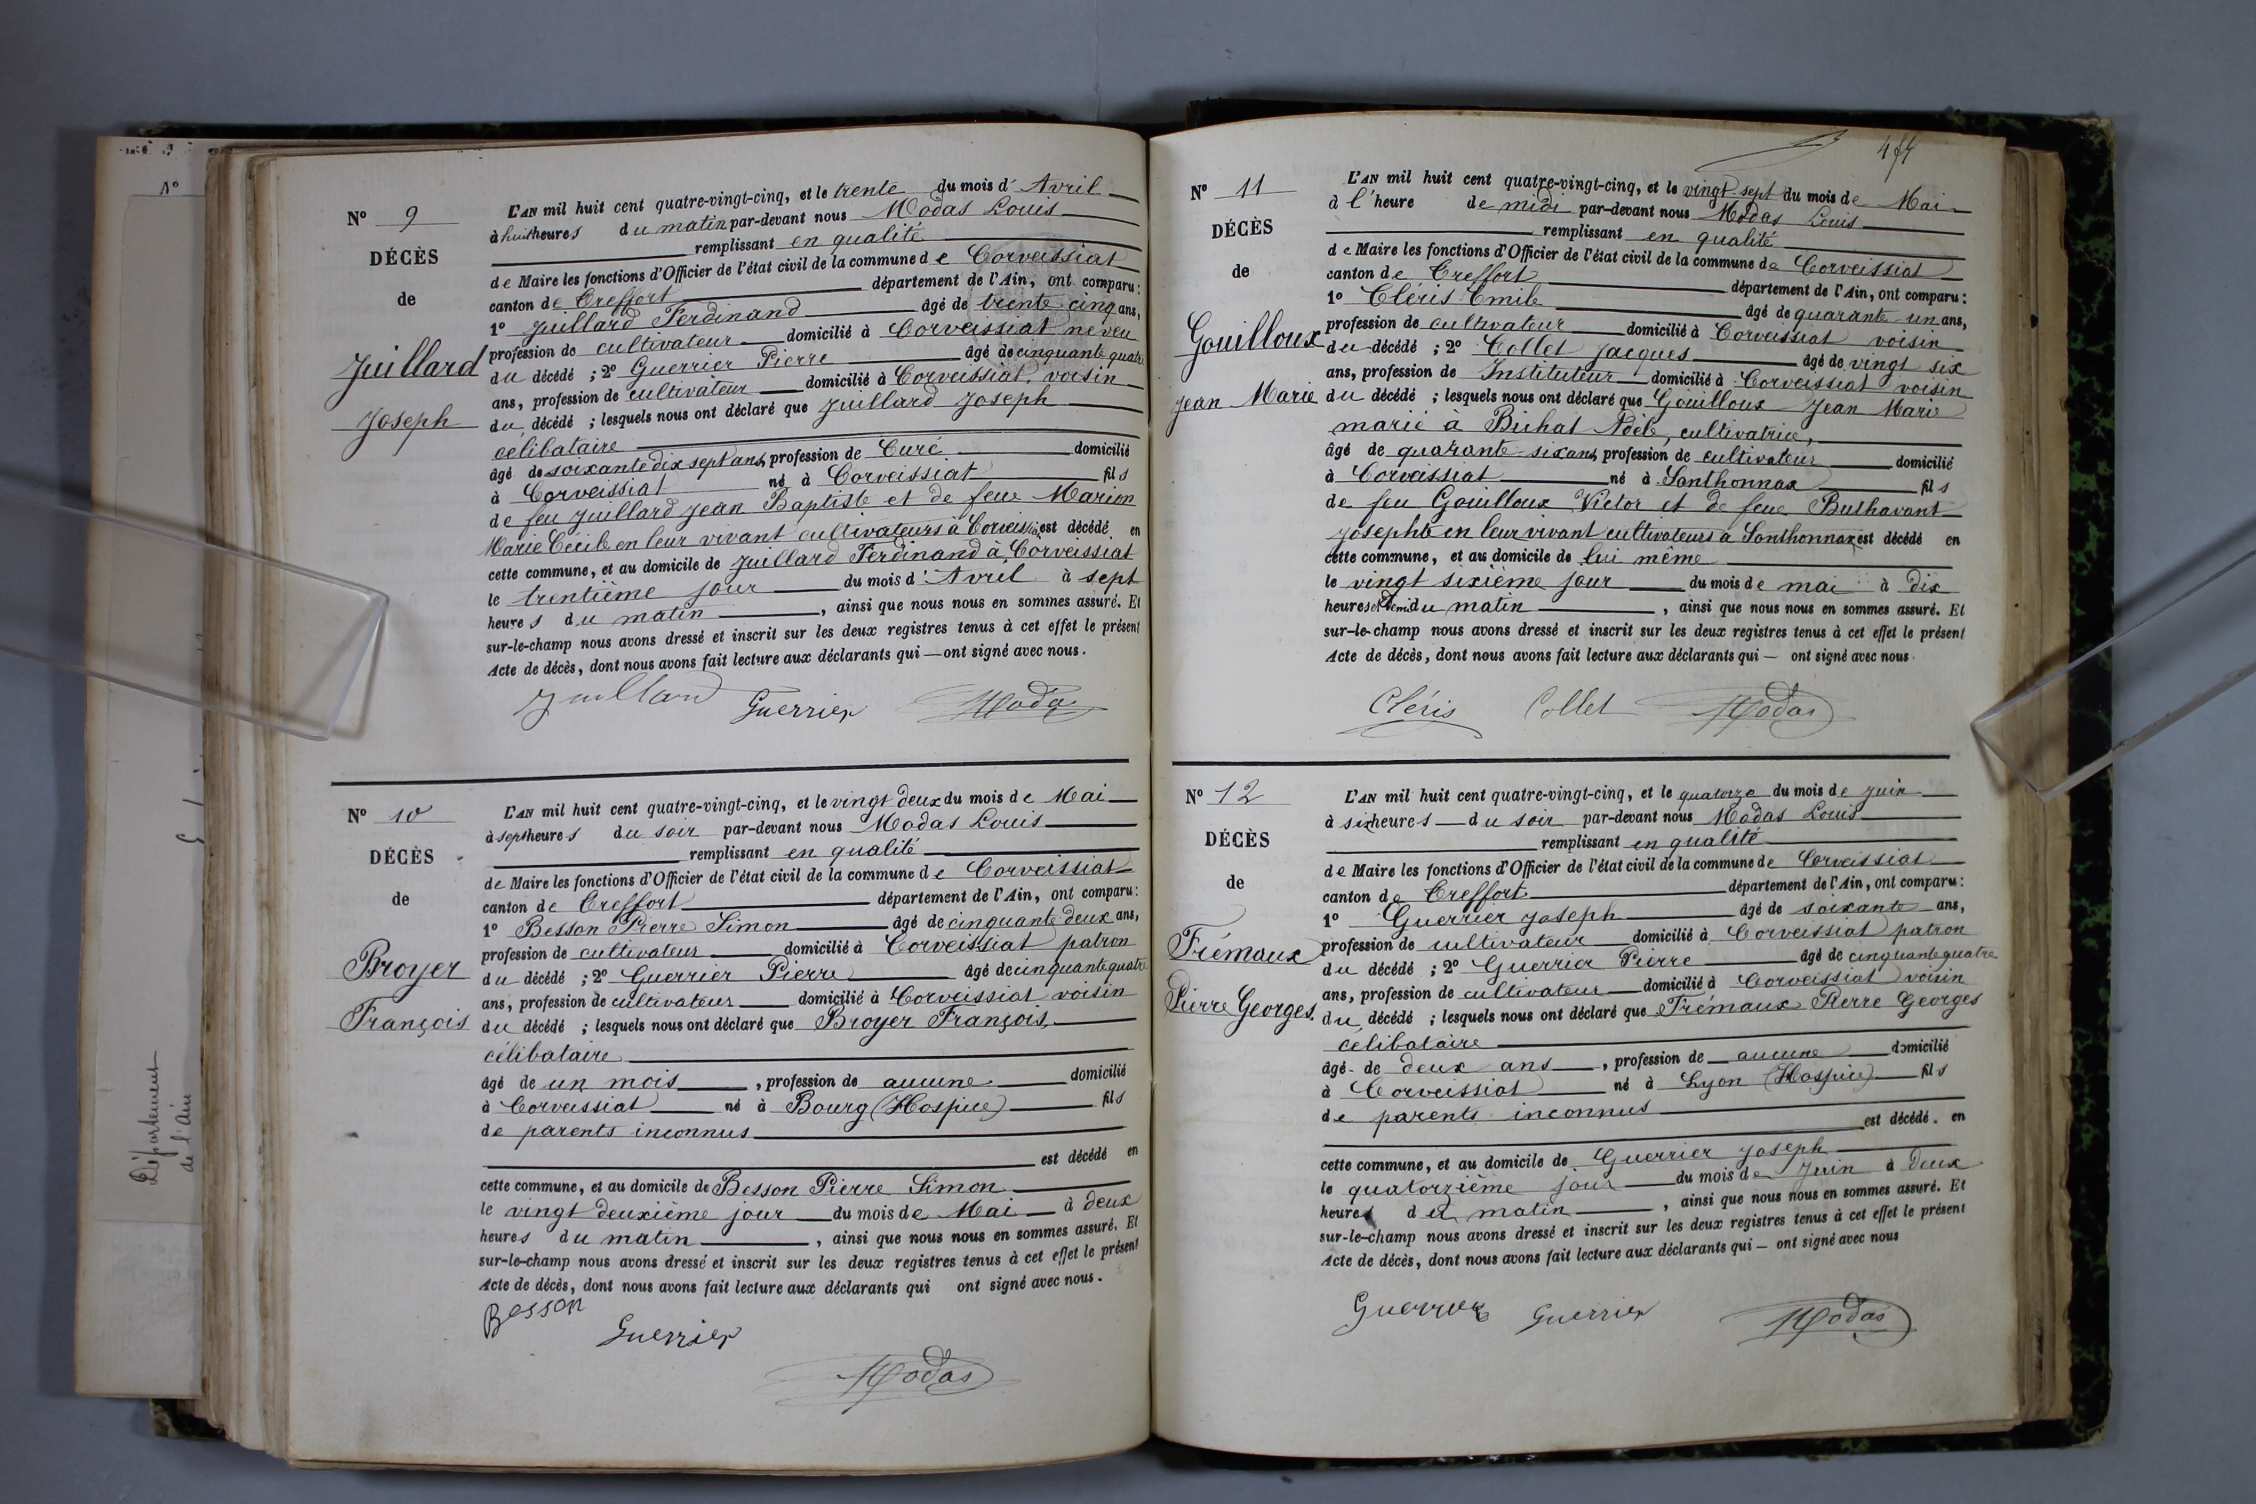 N° 9
DÉCÈS
de
Juillard
Joseph
L'AN mil huit cent quatre-vingt-cinq, et le trente du mois d' Avril
à huit heures du matin par-devant nous Modas Louis
remplissant en qualité
de Maire les fonctions d'Officier de l'état civil de la commune de Corveissiat
canton de Treffort département de l'Ain, ont comparu:
1° Juillard Ferdinand âgé de trente cinq ans,
profession de cultivateur domicilié à Corveissiat neveu
du décédé ; 2° Guerrier Pierre âgé de cinquante quatre
ans, profession de cultivateur domicilié à Corveissiat, voisin
du décédé ; lesquels nous ont déclaré que Juillard Joseph
célibataire
âgé de soixante dix sept ans, profession de Curé domicilié
à Corveissiat né à Corveissiat fils
de feu Juillard Jean Baptiste et de feue Marion
Marie Cécile en leur vivant cultivateurs à Corveissiat est décédé en
cette commune, et au domicile de Juillard Ferdinand à Corveissiat
le trentième jour du mois d' Avril à sept
heures du matin , ainsi que nous nous en sommes assuré. Et
sur-le-champ nous avons dressé et inscrit sur les deux registres tenus à cet effet le présent
Acte de décès, dont nous avons fait lecture aux déclarants qui — ont signé avec nous.
Juillard Guerrier Modas
N° 10
DÉCÈS
de
Broyer
François
L'AN mil huit cent quatre-vingt-cinq, et le vingt deux du mois de Mai
à sept heures du soir par-devant nous Modas Louis
remplissant en qualité
de Maire les fonctions d'Officier de l'état civil de la commune de Corveissiat
canton de Treffort département de l'Ain, ont comparu:
1° Besson Pierre Simon âgé de cinquante deux ans,
profession de cultivateur domicilié à Corveissiat patron
du décédé ; 2° Guerrier Pierre âgé de cinquante quatre
ans, profession de cultivateur domicilié à Corveissiat voisin
du décédé ; lesquels nous ont déclaré que Broyer François,
célibataire
âgé de un mois , profession de aucune domicilié
à Corveissiat né à Bourg (Hospice) fils
de parents inconnus
est décédé en
cette commune, et au domicile de Besson Pierre Simon
le vingt deuxième jour du mois de Mai à deux
heures du matin , ainsi que nous nous en sommes assuré. Et
sur-le-champ nous avons dressé et inscrit sur les deux registres tenus à cet effet le présent
Acte de décès, dont nous avons fait lecture aux déclarants qui ont signé avec nous.
Besson
Guerrier
Modas
Département
de l'ain
N° 11
DÉCÈS
de
Gouilloux
Jean Marie
L'AN mil huit cent quatre-vingt-cinq, et le vingt sept du mois de Mai
à l'heure de midi par-devant nous Modas Louis
remplissant en qualité
de Maire les fonctions d'Officier de l'état civil de la commune de Corveissiat
canton de Treffort département de l'Ain, ont comparu:
1° Cléris Emile âgé de quarante un ans,
profession de cultivateur domicilié à Corveissiat voisin
du décédé ; 2° Collet Jacques âgé de vingt six
ans, profession de Instituteur domicilié à Corveissiat voisin
du décédé ; lesquels nous ont déclaré que Gouilloux Jean Marie
marié à Bichat Noële, cultivatrice,
âgé de quarante-six ans, profession de cultivateur domicilié
à Corveissiat né à Sonthonnax fils
de feu Gouilloux Victor et de feue Buthavant
Josephte en leur vivant cultivateurs à Sonthonnax est décédé en
cette commune, et au domicile de lui même
le vingt sixième jour du mois de mai à dix
heures et demi du matin , ainsi que nous nous en sommes assuré. Et
sur-le-champ nous avons dressé et inscrit sur les deux registres tenus à cet effet le présent
Acte de décès, dont nous avons fait lecture aux déclarants qui — ont signé avec nous.
Cléris Collet Modas
N° 12
DÉCÈS
de
Frémaux
Pierre Georges.
L'AN mil huit cent quatre-vingt-cinq, et le quatorze du mois de Juin
à six heures du soir par-devant nous Modas Louis
remplissant en qualité
de Maire les fonctions d'Officier de l'état civil de la commune de Corveissiat
canton de Treffort département de l'Ain, ont comparu:
1° Guerrier Joseph âgé de soixante ans,
profession de cultivateur domicilié à Corveissiat patron
du décédé ; 2° Guerrier Pierre âgé de cinquante quatre
ans, profession de cultivateur domicilié à Corveissiat voisin
du décédé ; lesquels nous ont déclaré que Frémaux Pierre Georges
célibataire
âgé de deux ans , profession de aucune domicilié
à Corveissiat né à Lyon (Hospice) fils
de parents inconnus
est décédé. en
cette commune, et au domicile de Guerrier Joseph
le quatorzième jour du mois de Juin à deux
heures du matin , ainsi que nous nous en sommes assuré. Et
sur-le-champ nous avons dressé et inscrit sur les deux registres tenus à cet effet le présent
Acte de décès, dont nous avons fait lecture aux déclarants qui — ont signé avec nous
Guerrier Guerrier Modas